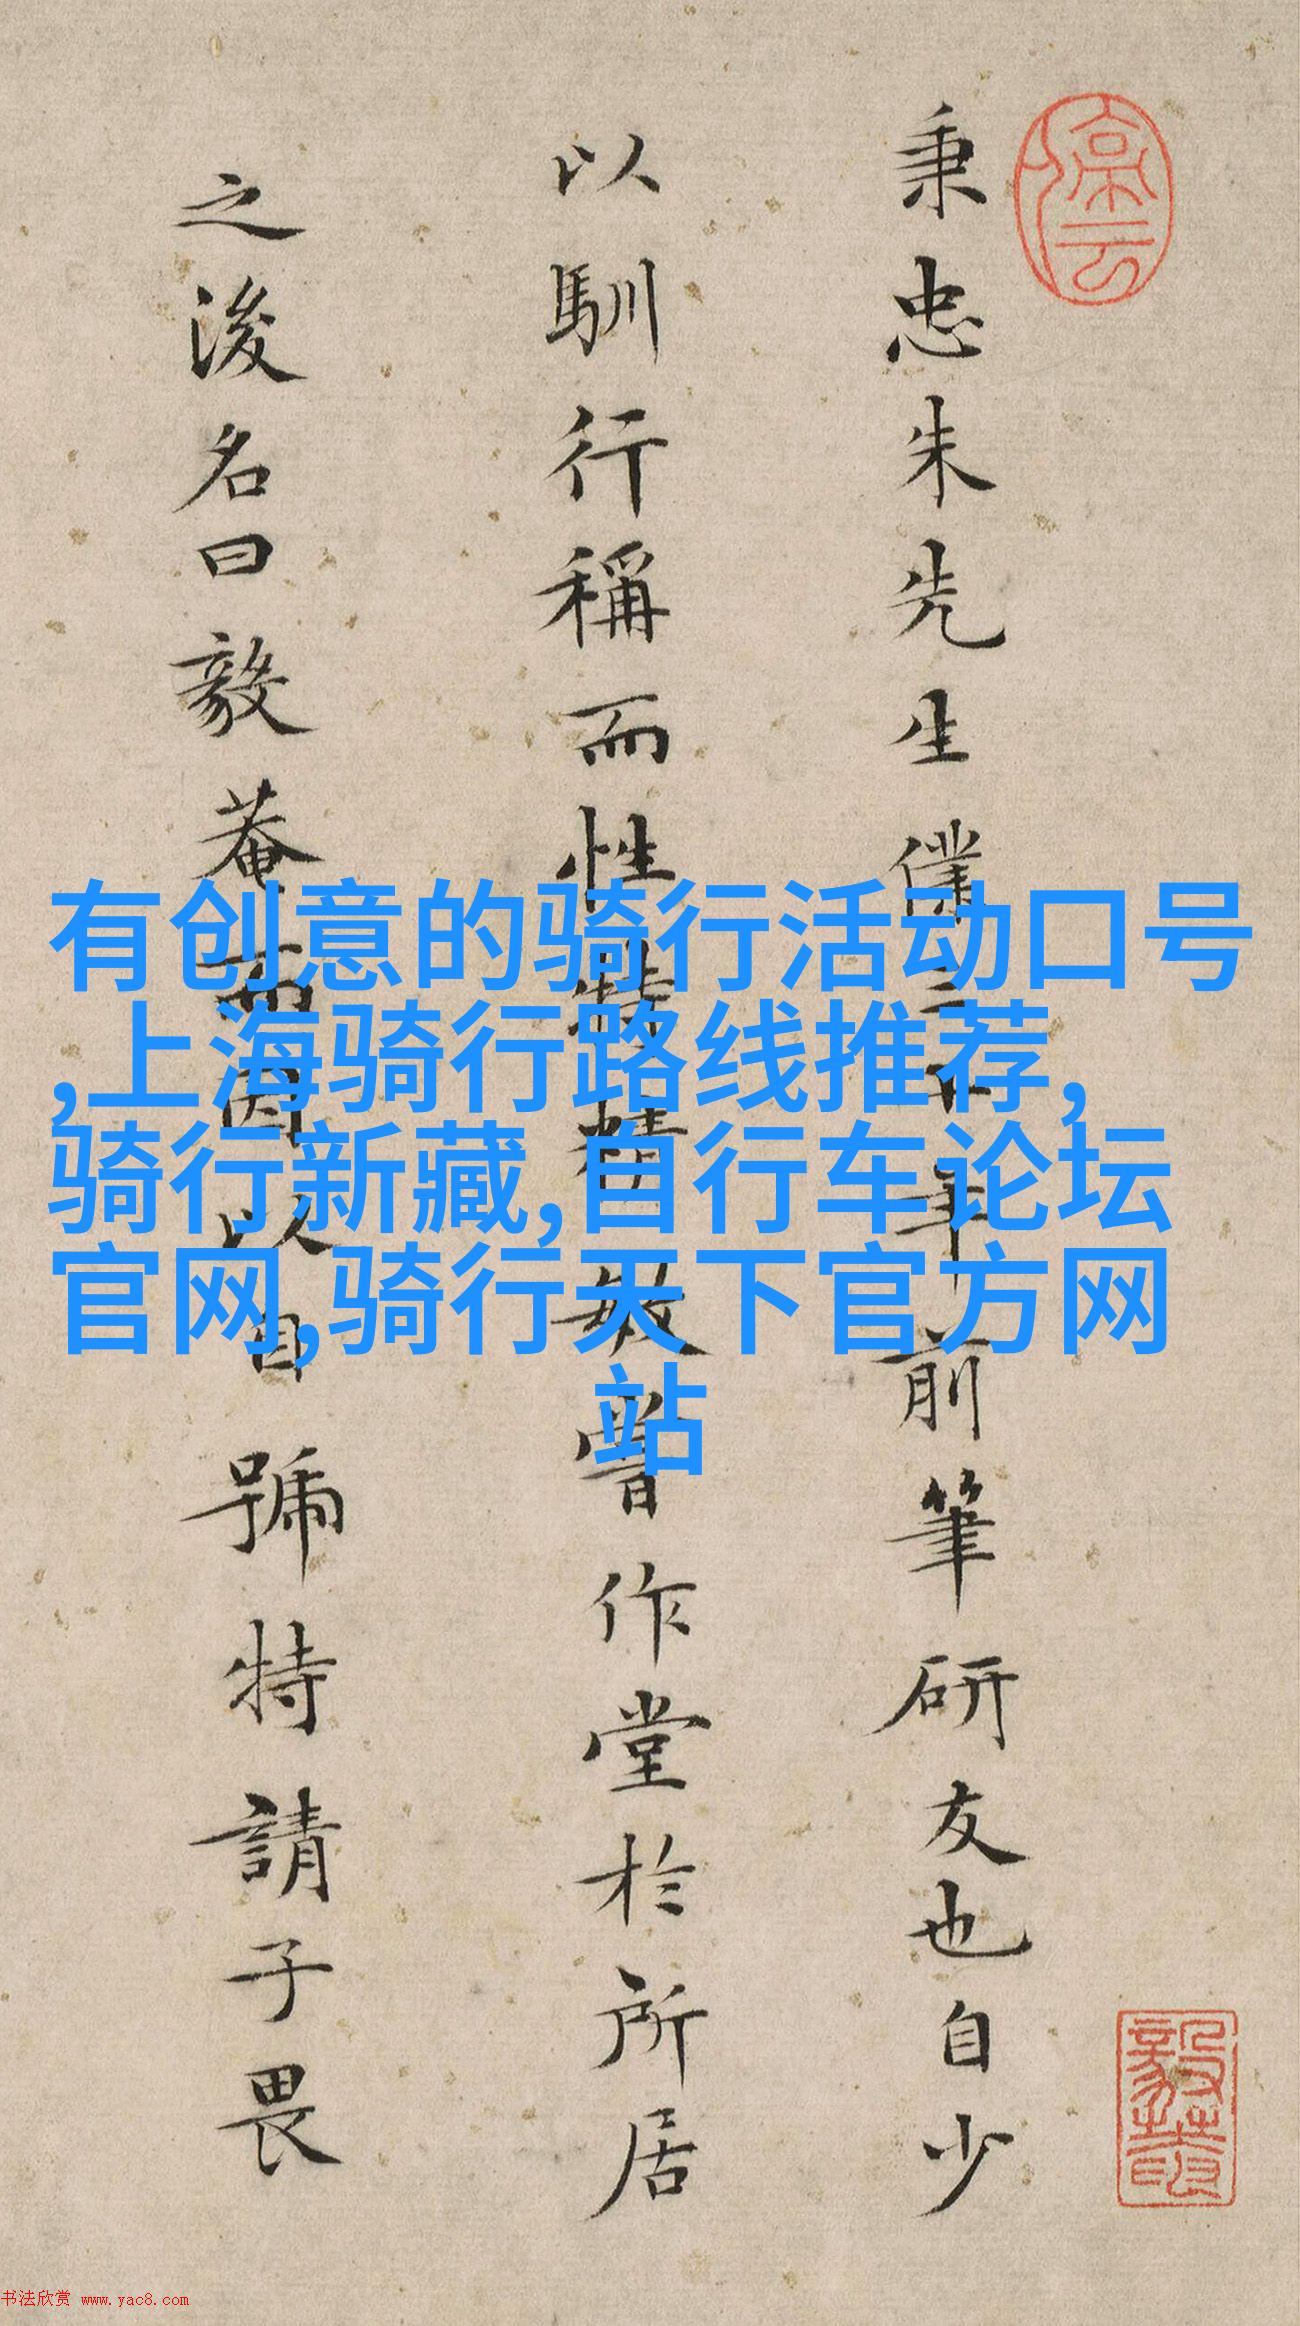 停云
秉忠朱先生僕三十年前筆研友也自少
以馴行稱而性特精敏嘗作堂於所居
之後名曰毅菴而因以自號特請子畏
有创意的骑行活动口号
,上海骑行路线推荐,
骑行新藏,自行车论坛
官网,骑行天下官方网
站
书法欣赏 www.yac8.com